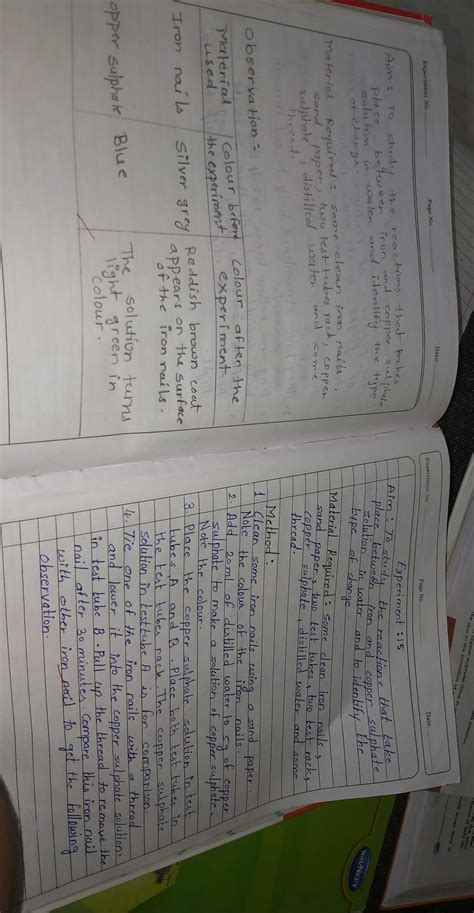 Experiment No.
Page No.
Date:
Aim: To study the reactions that takes
place between iron and copper sulphate
solution in water and identify the type
of change.
Material Required: some clean iron nails,
sand paper, two test tubes rack, copper
sulphate, distilled water and some
thread.
Observation:
Material used
Colour before the experiment
Colour after the experiment
Iron nails
Silver grey
Reddish brown coat
appears on the surface
of the iron nails.
opper sulphate
Blue
The solution turns
light green in
colour.
Experiment No.
Page No.
Date:
Experiment: 15
Aim: To study the reactions that take
place between iron and copper sulphate
solution in water and to identify the
type of change
Material Required: Some clean iron nails,
sand paper, two test tubes, two test racks,
copper sulphate, distilled water and some
thread.
Method:
1. Clean some iron nails using a sand paper
Note the colour of the iron nails.
2. Add 20ml of distilled water to 5g of copper
sulphate to make a solution of copper sulphate.
Note the colour.
3. Place the copper sulphate solution in test
tubes A and B. Place both test tubes in
the test tubes rack The copper sulphate
solution in testtube A is for comparison.
4. Tie one of the iron nails with a thread
and lower it into the copper sulphate solution.
in test tube B. Pull up the thread to remove the
nail after 30 minutes. Compare this iron nail
with other iron nail to get the following
Observation.
NAVNEET